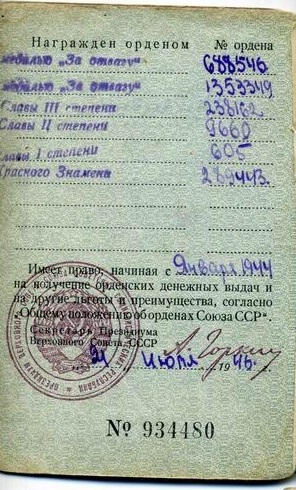 Награжден орденом № ордена
медалью „За отвагу" 688546
медалью „За отвагу" 1353349
Славы III степени 238182
Славы II степени 9660
Славы I степени 605
Красного Знамени 289443
Имеет право, начиная с Января 1944
на получение орденских денежных выдач и
на другие льготы и преимущества, согласно
„Общему положению об орденах Союза ССР".
Секретарь Президиума
Верховного Совета СССР А. Горкин
„21" июля 1946.
№ 934480